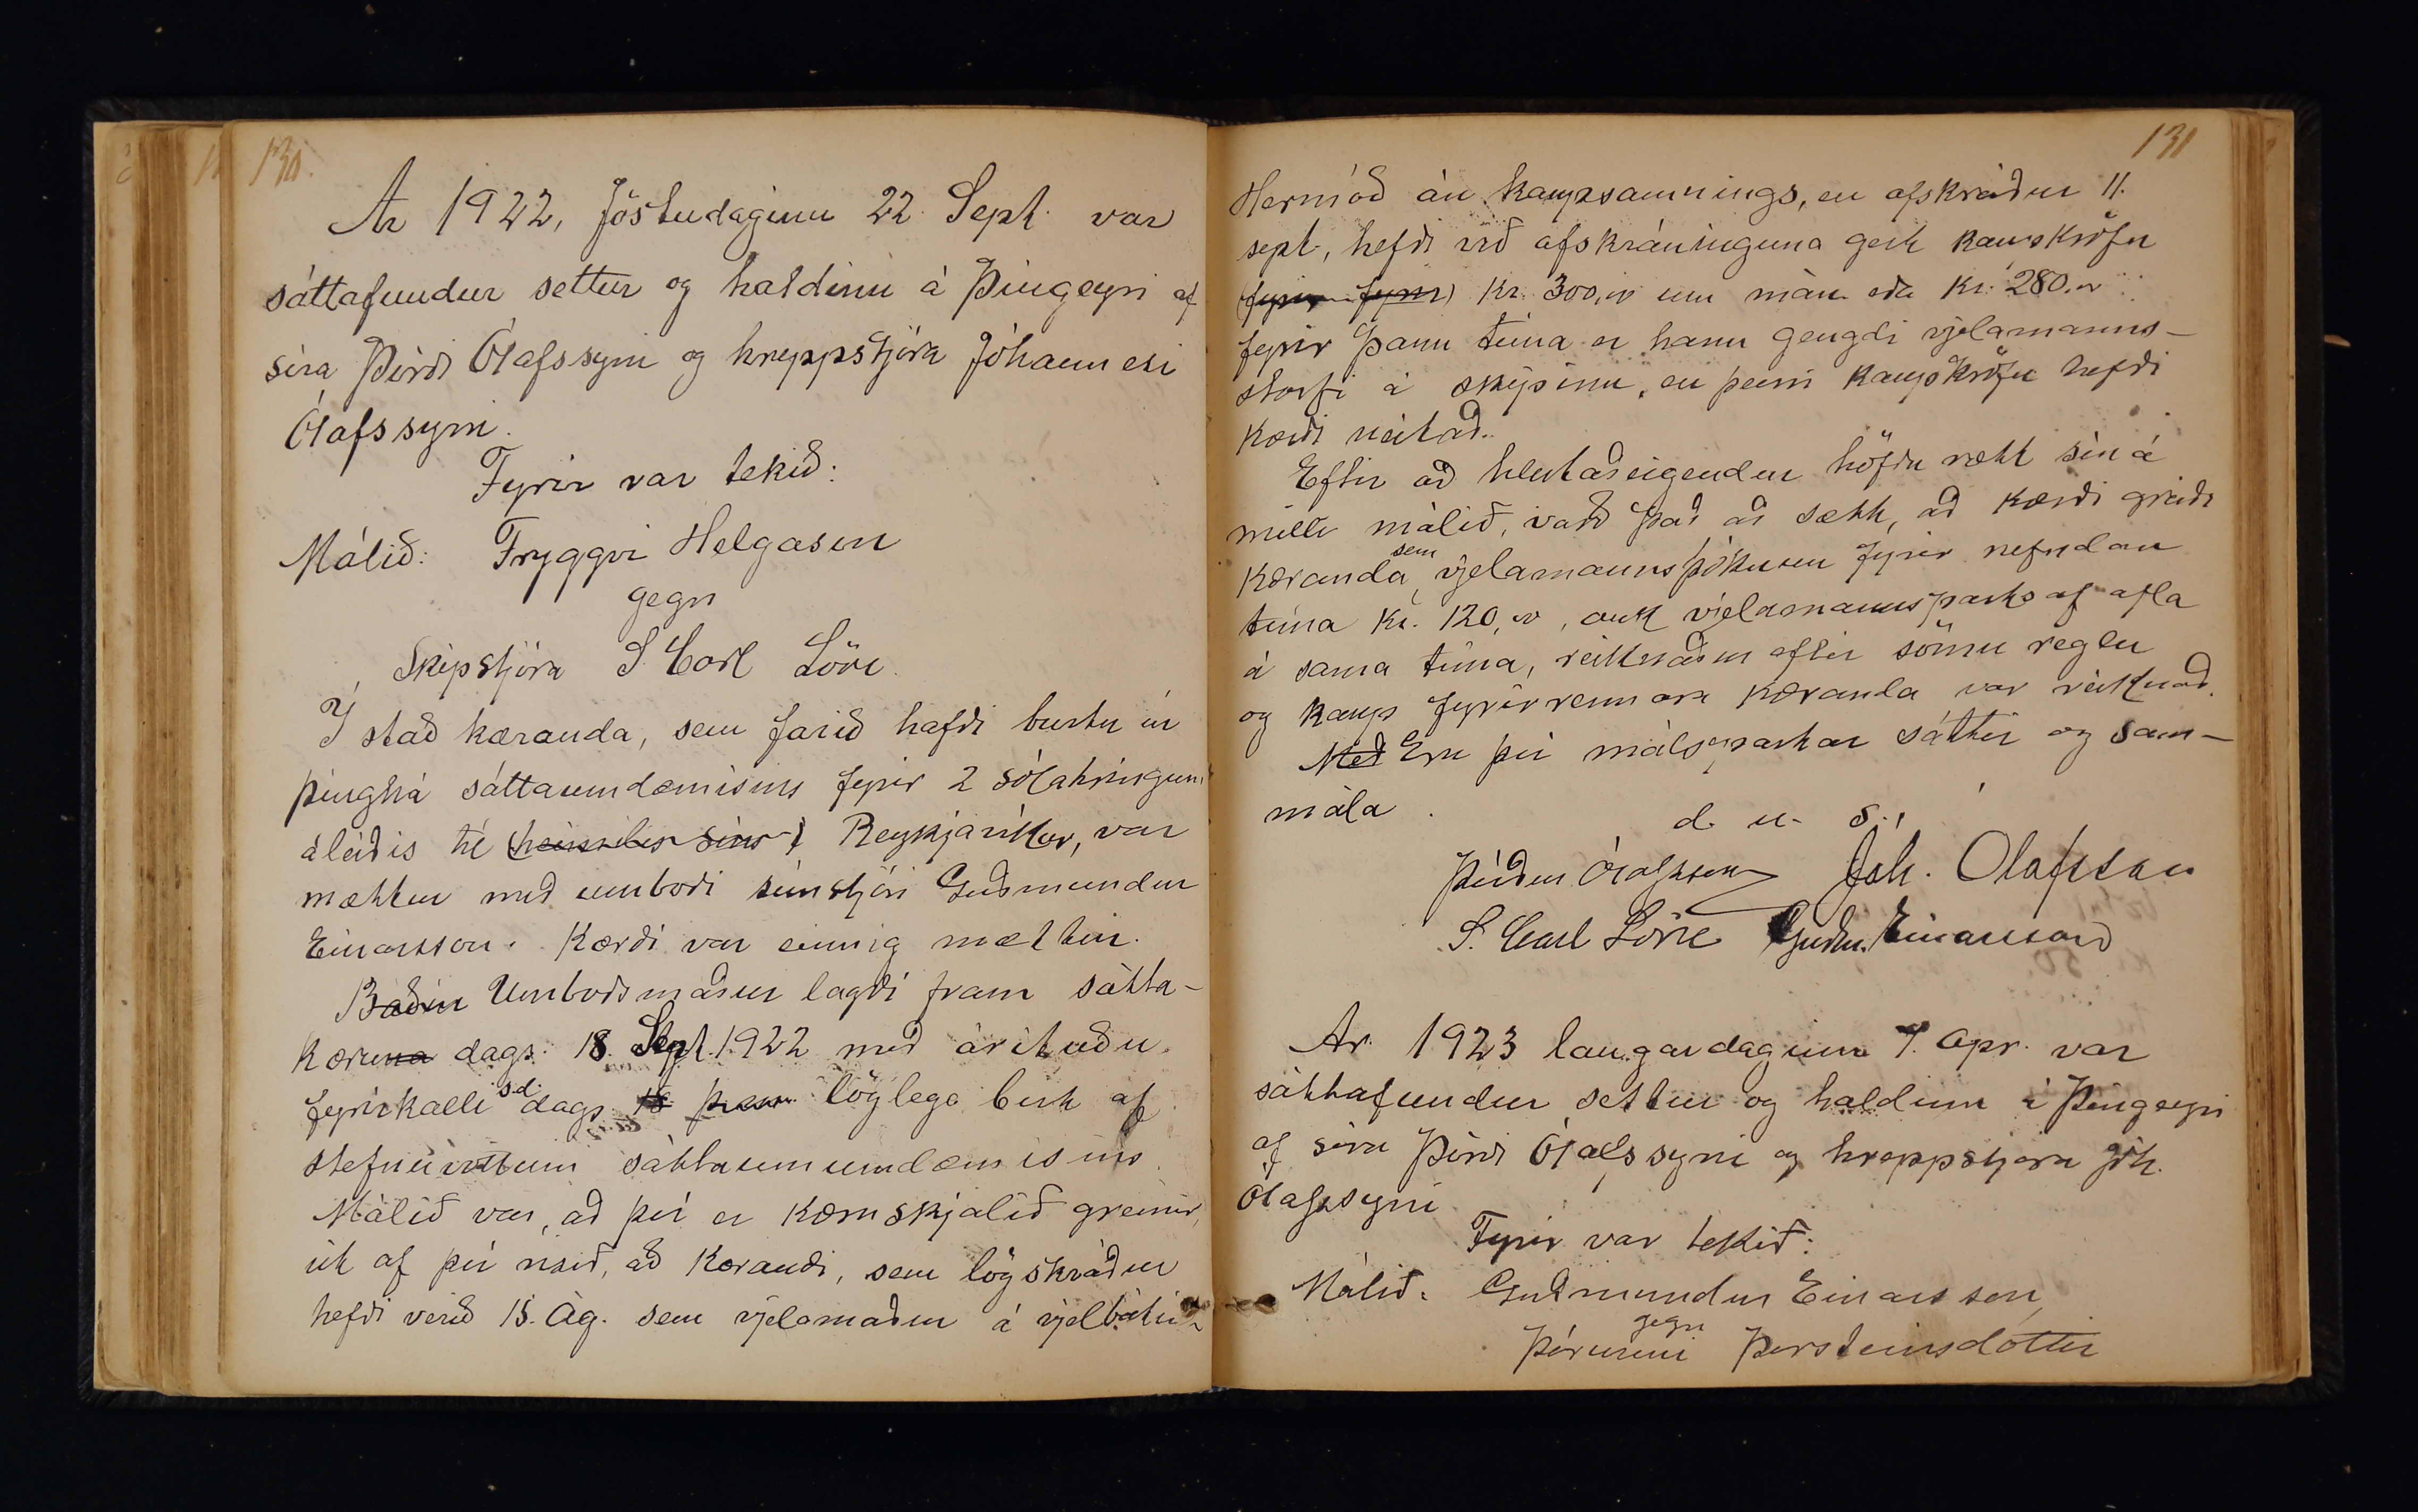 130.
Ár 1922, föstudaginn 22. Sept. var
sáttafundur settur og haldinn á Þingeyri af
síra Þórði Ólafssyni og hreppstjóra Jóhannesi
Ólafssyni.
Fyrir var tekið:
Málið: Tryggvi Helgason
gegn
Skipstjóra S. Carl Löve.
Í stað kæranda, sem farið hafði burtu úr
þinghá sáttaumdæmisins fyrir 2 sólahringum
áleiðis til (heimilis síns) Reykjavíkur, var
mættur með umboði símstjóri Guðmundur
Einarsson. Kærði var einnig mættur.
Báðir Umboðsmaður lagði fram sátta-
kæruna dags. 18. Sept. 1922 með árituðu
fyrirkalli s.d. dags. 18 löglega birt af
stefnuvottum sáttaumumdæmisins.
Málið var, að því er kæruskjalið greinir,
út af því risið, að kærandi, sem lögskráður
hefði verið 15. Ág. sem vjelamaður á vjelbátinn
131
Hermóð án kaupsamnings, en afskráður 11.
sept., hefði við afskráninguna gert kaupkröfu
(fyrir fyrir) Kr. 300,00 um mán. eða Kr. 280.00
fyrir þann tíma er hann gengdi vjelamanns-
starfi á skipinu, en þeirri kaupkröfu hefði
kærði neitað.
Eftir að hlutaðeigendur höfðu rætt sín á
milli málið, varð það að sætt, að kærði greiði
kæranda sem vjelamannsþóknun fyrir nefndan
tíma Kr. 120,00, auk vjelamannsparts af afla
á sama tíma, reiknaðum eftir sömu reglu
og kaup fyrirrennara kæranda var reiknað.
Með Eru því málspartar sáttir og sam-
mála.
d. u. s.
Þórður Ólafsson Jóh. Ólafsson
S. Carl Löve Guðm. Einarsson
Ár 1923 laugardaginn 7. Apr. var
sáttafundur settur og haldinn á Þingeyri
af síra Þórði Ólafssyni og hreppstjóra Jóh.
Ólafssyni
Fyrir var tekið:
Málið. Guðmundur Einarsson
gegn
Þórunni Þorsteinsdóttur